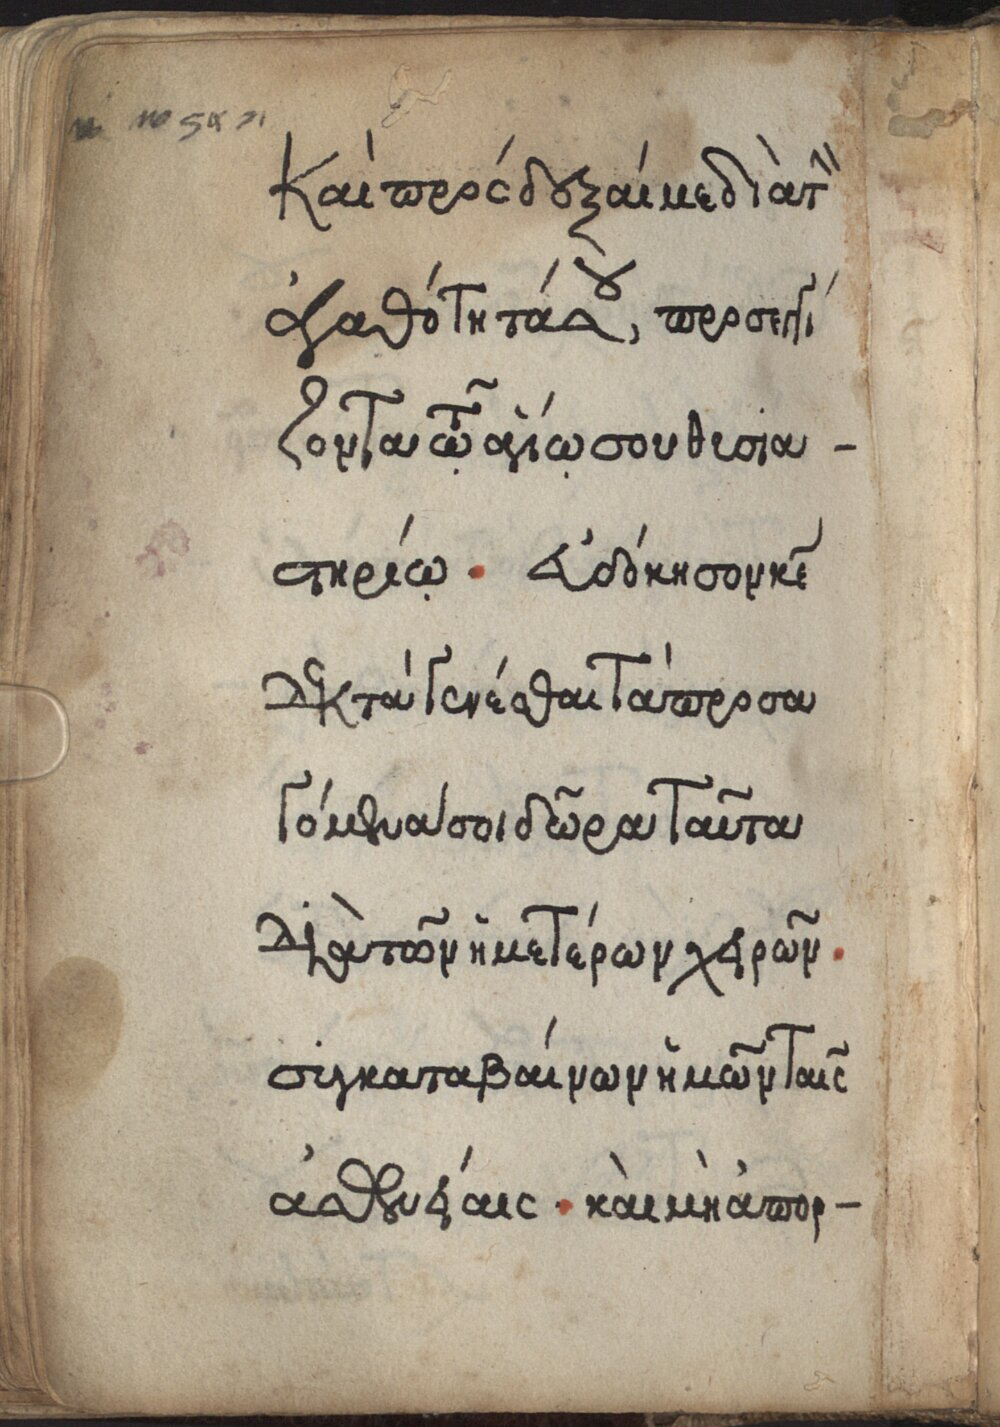 Καὶ πρόσδεξαί με διὰ τὴν
ἀγαθότητά σου, προσεγγί
ζοντα τῷ ἁγίῳ σου θυσια-
στηρίῳ. Εὐδόκησον κε
δεκτὰ γενέσθαι τὰ προσα
γόμενά σοι δῶρα ταῦτα
διὰ τῶν ἡμετέρων χειρῶν.
συγκαταβαίνων ἡμῶν ταῖς
ἀσθενείαις. καὶ μὴ ἀπορ-